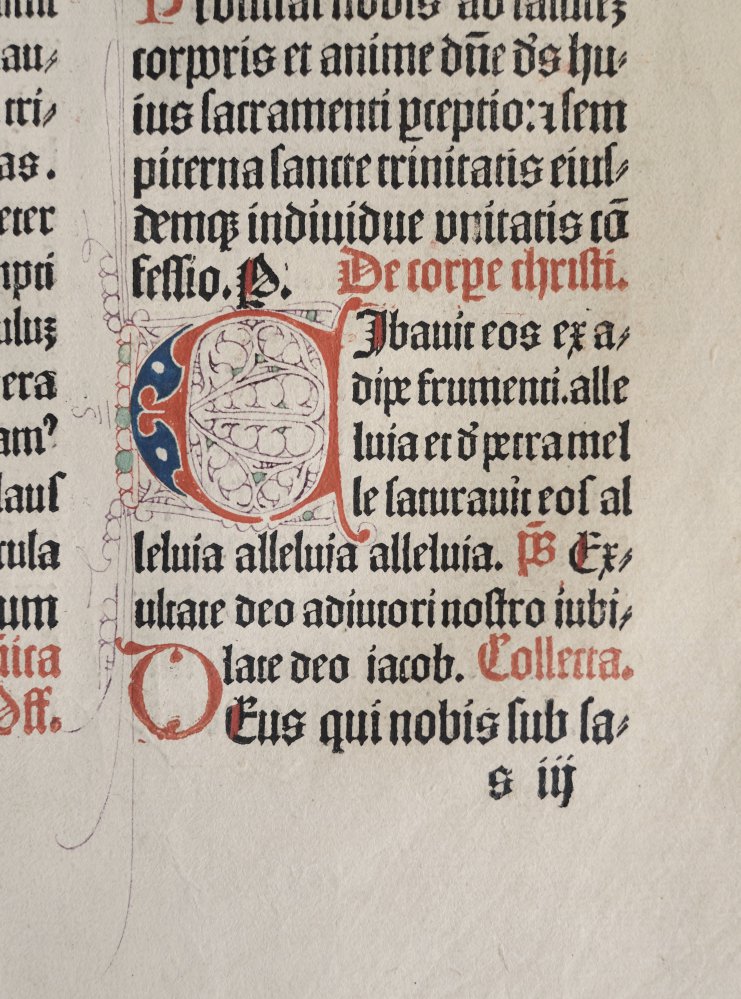 au⸗
tri⸗
as.
eter
mpti
uluʒ
era
am?
lauſ
cula
um
Off.
Proſiciat nobis ad ſaluteʒ
corporis et anime dn̄e ds̄ hu⸗
ius ſacramenti ꝑceptio: ⁊ ſem
piterna ſancte trinitatis eiuſ⸗
demqʒ indiuidue vnitatis cō
feſſio. P. De corpe chriſti.
CIbauit eos ex a⸗
dipe frumenti. alle
luia et d̄ petra mel
le ſaturauit eoſ al
leluia alleluia alleluia. p̄s Ex⸗
ultate deo adiutori noſtro iubi⸗
late deo iacob. Collecta.
DEus qui nobis ſub ſa⸗
s iij